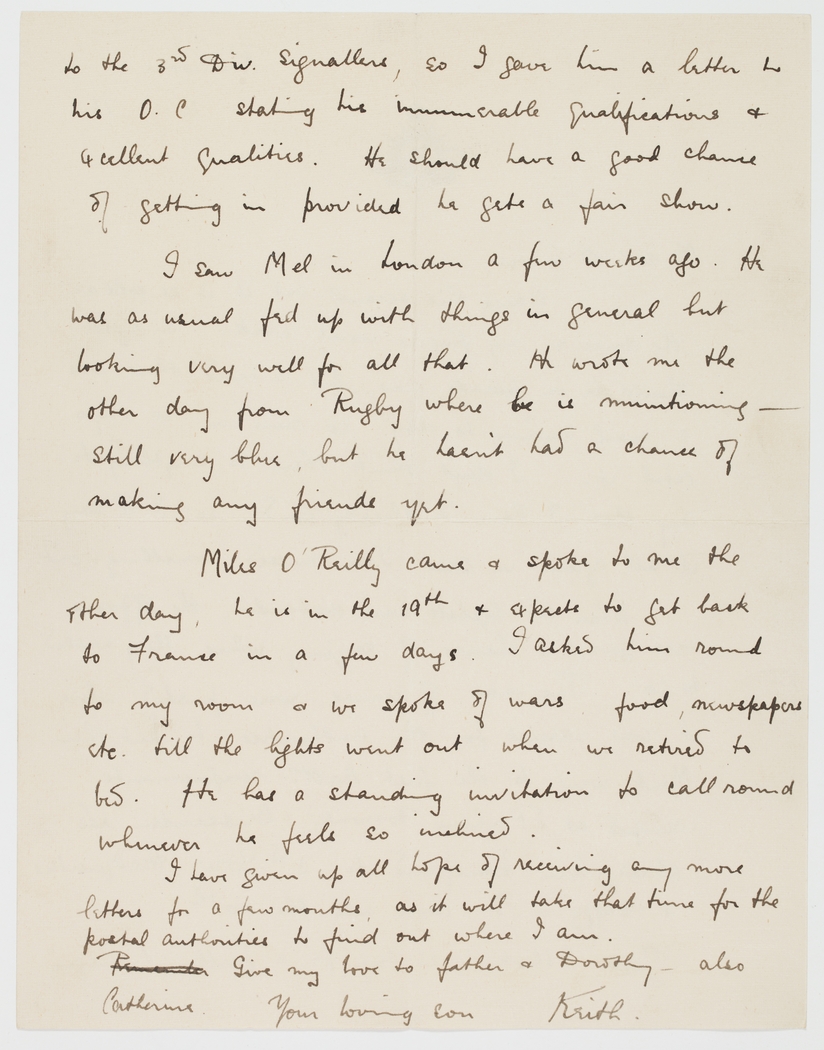 to the 3rd Div. Signallers, so I gave him a letter to
his O.C stating his innumerable qualifications &
excellent qualities. He should have a good chance
of getting in provided he gets a fair show.
I saw Mel in London a few weeks ago. He
was as usual fed up with things in general but
looking very well for all that. He wrote me the
other day from Rugby where he is munitioning —
still very blue, but he hasn't had a chance of
making any friends yet.
Miles O'Reilly came & spoke to me the
other day, he is in the 19th & expects to get back
to France in a few days. I asked him round
to my room & we spoke of wars food, newspapers
etc. till the lights went out when we retired to
bed. He has a standing invitation to call round
whenever he feels so inclined.
I have given up all hope of receiving any more
letters for a few months, as it will take that time for the
postal authorities to find out where I am.
Remember Give my love to father & Dorothy – also
Catherine. Your loving son Keith.